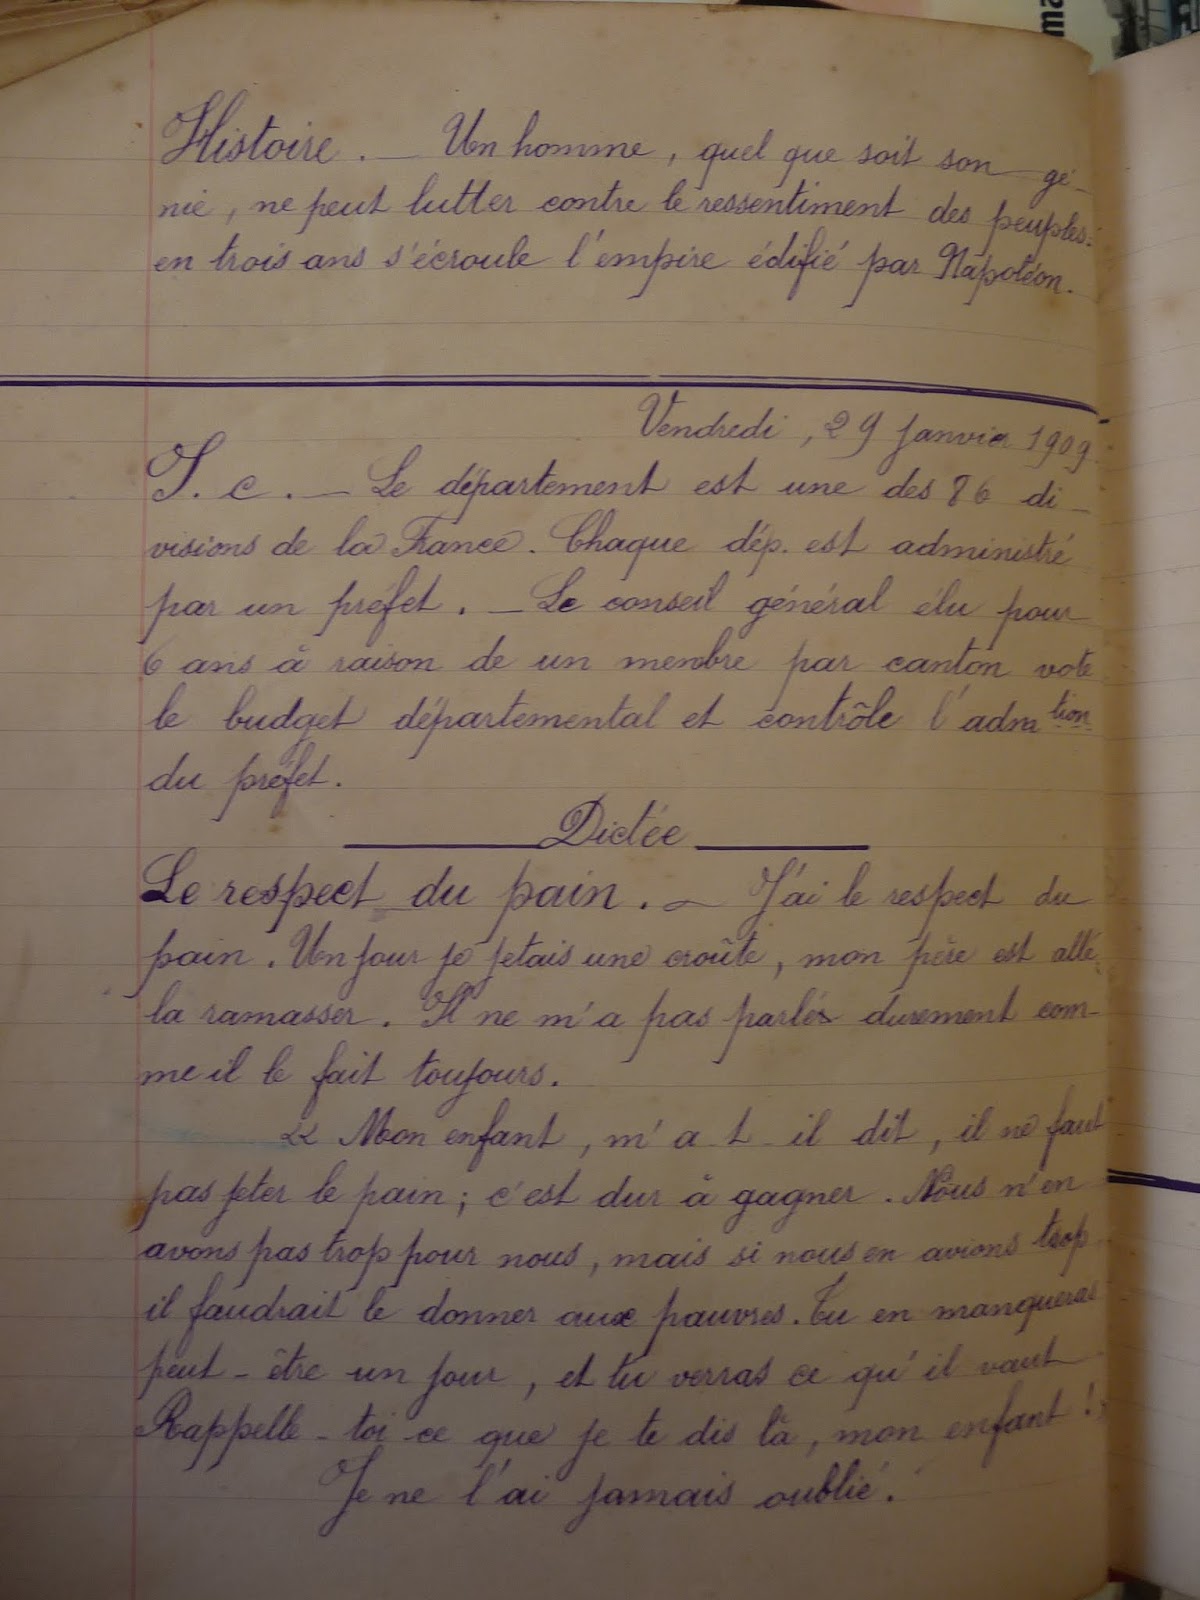 ma
Histoire. — Un homme, quel que soit son gé-
nie, ne peut lutter contre le ressentiment des peuples:
en trois ans s'écroule l'empire édifié par Napoléon.
Vendredi, 29 janvier 1909.
I. c. — Le département est une des 86 di-
visions de la France. Chaque dép. est administré
par un préfet. — Le conseil général élu pour
6 ans à raison de un membre par canton vote
le budget départemental et contrôle l'adm tion
du préfet.
Dictée
Le respect du pain. — J'ai le respect du
pain. Un jour je jetais une croûte, mon père est allé
la ramasser. Il ne m'a pas parlé durement com-
me il le fait toujours.
« Mon enfant, m'a t-il dit, il ne faut
pas jeter le pain; c'est dur à gagner. Nous n'en
avons pas trop pour nous, mais si nous en avions trop
il faudrait le donner aux pauvres. Tu en manqueras
peut-être un jour, et tu verras ce qu'il vaut
Rappelle-toi ce que je te dis là, mon enfant!
Je ne l'ai jamais oublié.